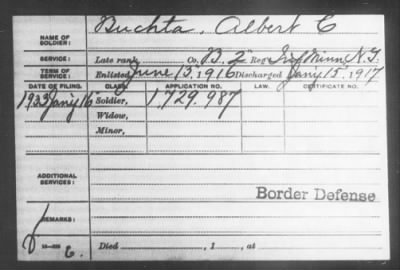 NAME OF SOLDIER: Buchta, Albert C
SERVICE: Late rank Co. B. 2" Reg't Inf Minn. N.G.
TERM OF SERVICE: Enlisted June 15, 1916 Discharged Jan'y 15, 1917
DATE OF FILING. CLASS. APPLICATION NO. LAW. CERTIFICATE NO.
1933 Jan'y 16 Soldier, 1,729,987
Widow,
Minor,
ADDITIONAL SERVICES:
Border Defense
REMARKS:
C.
Died , 1 , at